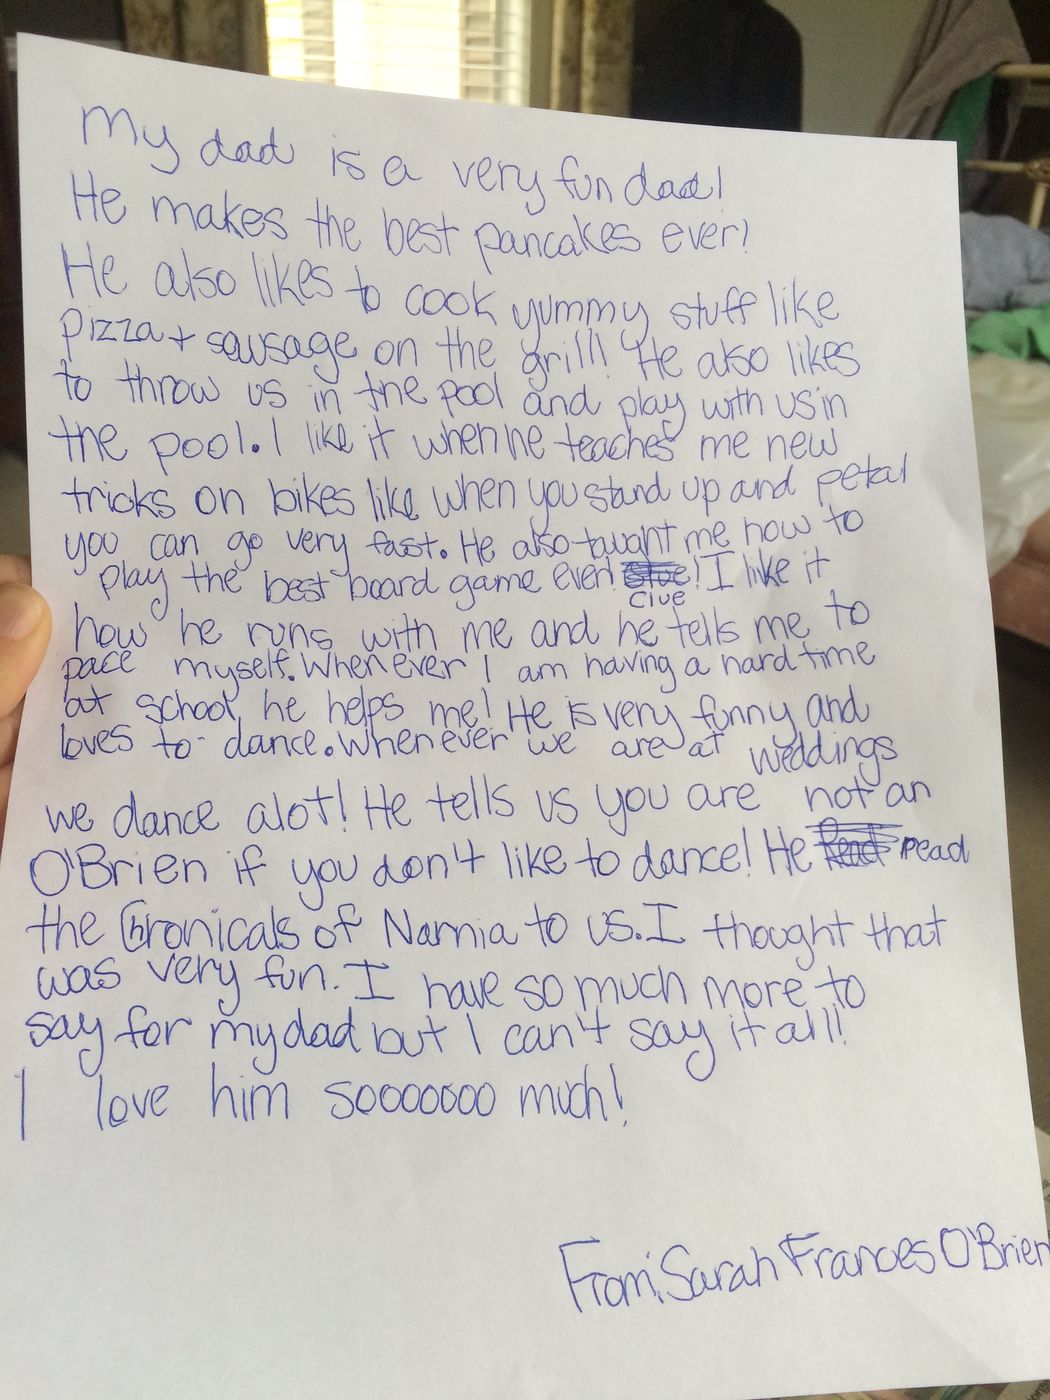 My dad is a very fun dad!
He makes the best pancakes ever!
He also likes to cook yummy stuff like
pizza + sausage on the grill! He also likes
to throw us in the pool and play with us in
the pool. I like it when he teaches me new
tricks on bikes like when you stand up and petal
you can go very fast. He also taught me how to
play the best board game ever! Clue! I like it
how he runs with me and he tells me to
pace myself. Whenever I am having a hard time
at school, he helps me! He is very funny and
loves to dance. Whenever we are at weddings
we dance alot! He tells us you are not an
O'Brien if you don't like to dance! He read
the Chronicals of Narnia to us. I thought that
was very fun. I have so much more to
say for my dad but I can't say it all!
I love him sooooooo much!
From, Sarah Frances O'Brien